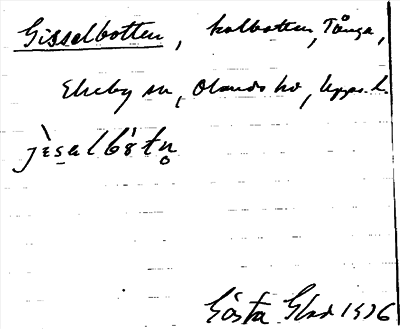 Gisselbotten, kolbotten, Tånga,
Ekeby sn, Olands hd, Upps. l.
jìsalbòtn̥
Gösta Glad 1926